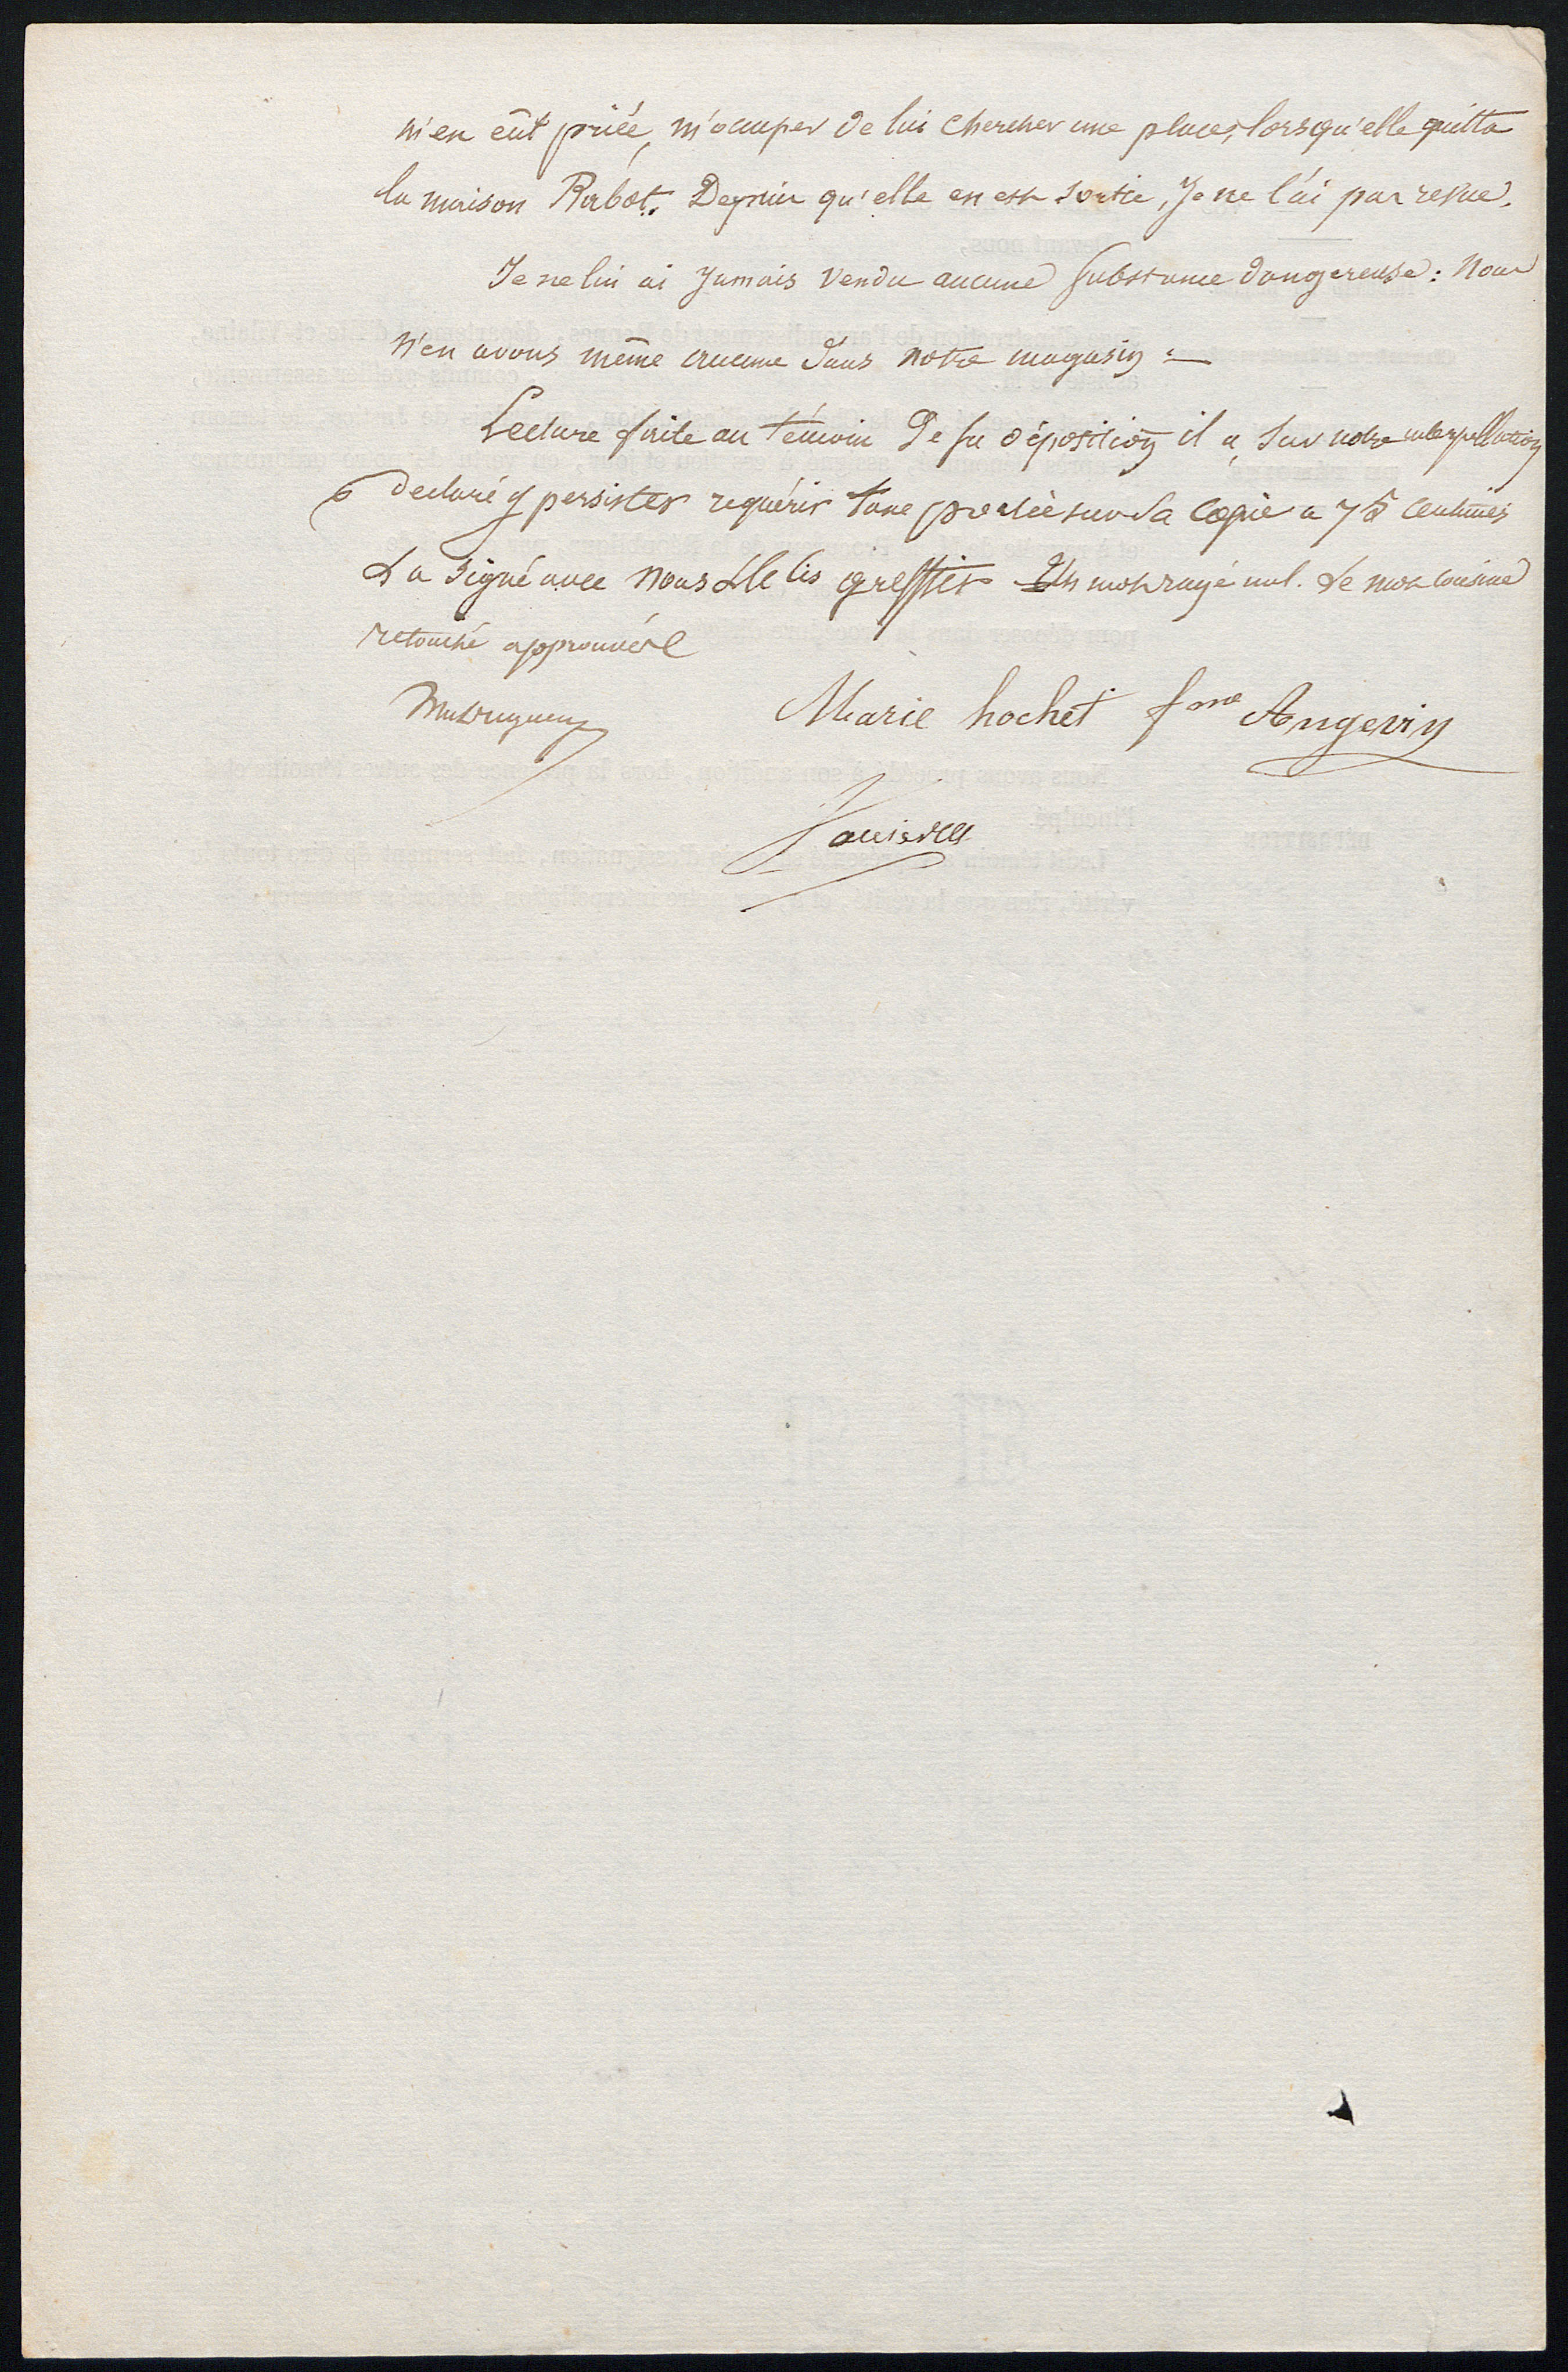 m'en eût priée, m'occuper de lui chercher une place, lorsqu'elle quitta
la maison Rabot. Depuis qu'elle en est sortie, Je ne l'ai pas revue.
Je ne lui ai jamais vendu aucune substance dangereuse : Nous
n'en avons même aucune dans notre magasin =
Lecture faite au témoin de sa déposition il a, sur notre interpellation
déclaré y persister requérir taxe portée sur sa copie a 75 centimes
& a signé avec nous & le Cis greffier Un mot rayé nul. Le mot cousine
retouché approuvé
Marie hochet fme Angevin